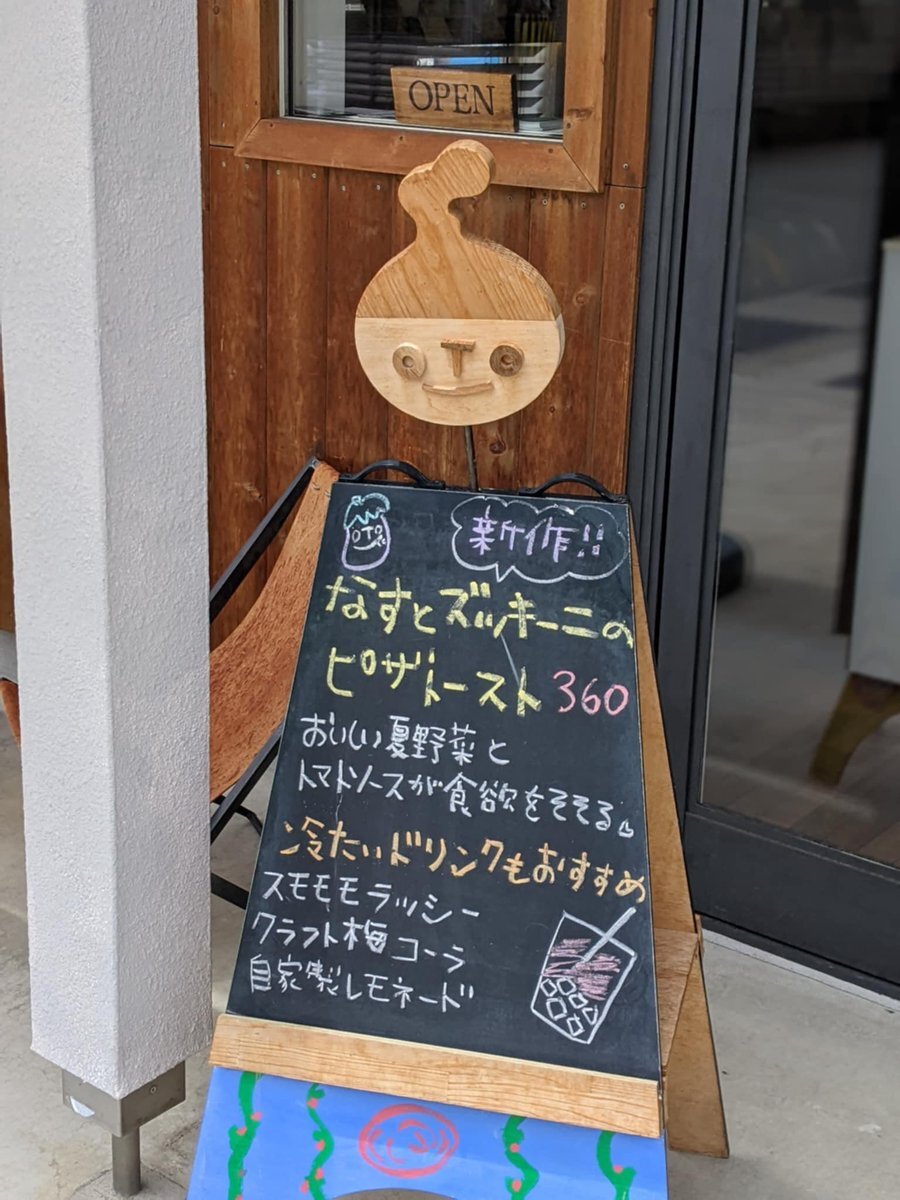 OPEN
新作!!
なすとズッキーニの
ピザトースト 360
おいしい夏野菜と
トマトソースが食欲をそそる。
冷たいドリンクもおすすめ
スモモモラッシー
クラフト梅コーラ
自家製レモネード